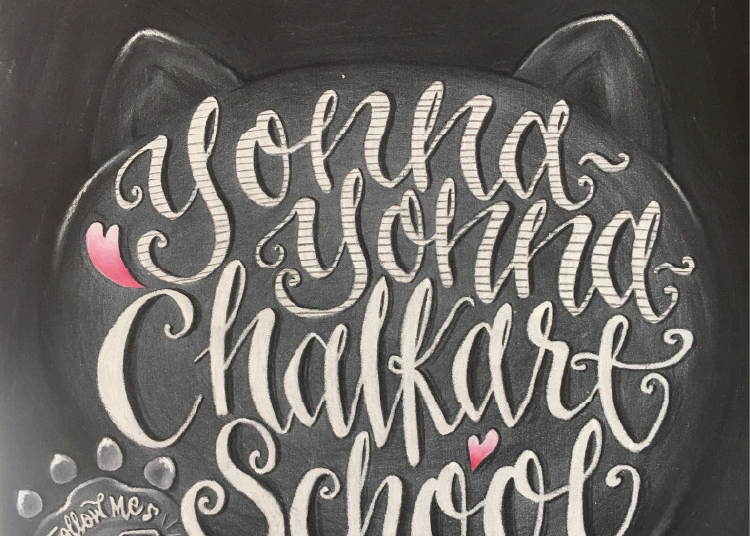 Yonna-
Yonna-
Chalkart
School
Follow Me♪